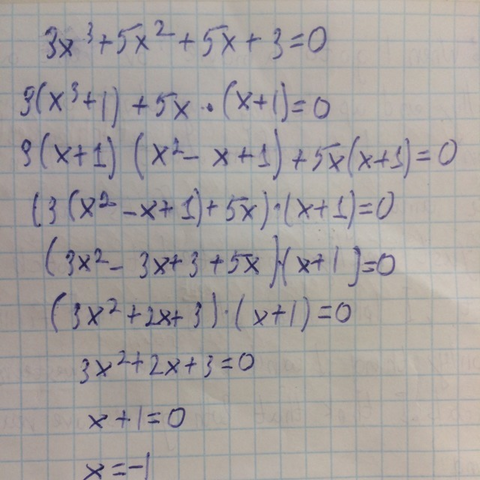 3x³+5x²+5x+3=0
3(x³+1)+5x·(x+1)=0
3(x+1)(x²-x+1)+5x(x+1)=0
(3(x²-x+1)+5x)·(x+1)=0
(3x²-3x+3+5x)·(x+1)=0
(3x²+2x+3)·(x+1)=0
3x²+2x+3=0
x+1=0
x=-1